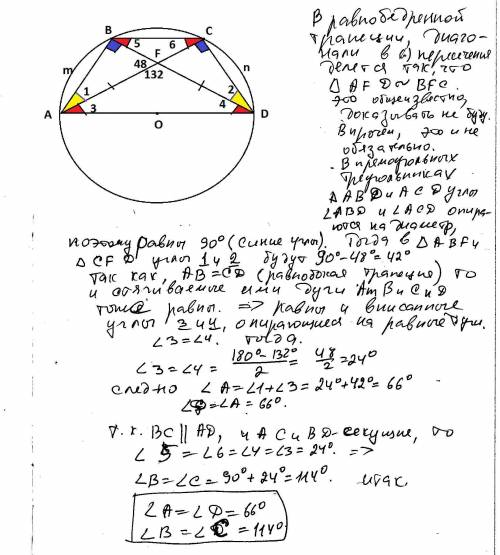 B
C
5
6
F
48
132
m
n
1
2
3
4
A
O
D
В равнобедренной
трапеции, диаго-
нали в (·) пересечения
делятся так, что
△AFD ~ BFC.
это общеизвестно,
доказывать не буду.
Впрочем, это и не
обязательно.
В прямоугольных
треугольниках
△ABD и ACD углы
∠ABD и ∠ACD опира-
ются на диаметр,
поэтому равны 90° (синие углы). Тогда в △ABF и
△CFD углы 1 и 2 будут 90°-48°=42°
так как, AB=CD (равнобокая трапеция) то
и стягиваемые ими дуги AmB и CnD
тоже равны. => равны и вписанные
углы 3 и 4, опирающиеся на равные дуги.
∠3=∠4. Тогда.
∠3=∠4= (180°-132°)/2 = 48/2 = 24°
следно ∠A=∠1+∠3=24°+42°=66°
∠D=∠A=66°.
т.к. BC || AD, и AC и BD-секущие, то
∠5=∠6=∠4=∠3=24°. =>
∠B=∠C=90°+24°=114°. итак
∠A=∠D=66°
∠B=∠C=114°